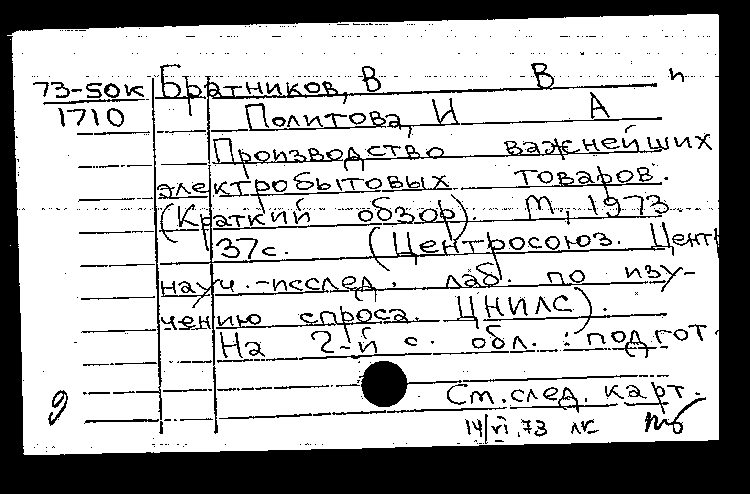 73-50к Братников, В В п
1710 Политова, И А
Производство важнейших
электробытовых товаров.
(Краткий обзор). М, 1973.
37с. (Центросоюз. Центр
науч.-исслед. лаб. по изу-
чению спроса. ЦНИЛС).
На 2-й с. обл.: подгот.
См. след. карт.
9
14/VI.73 лк